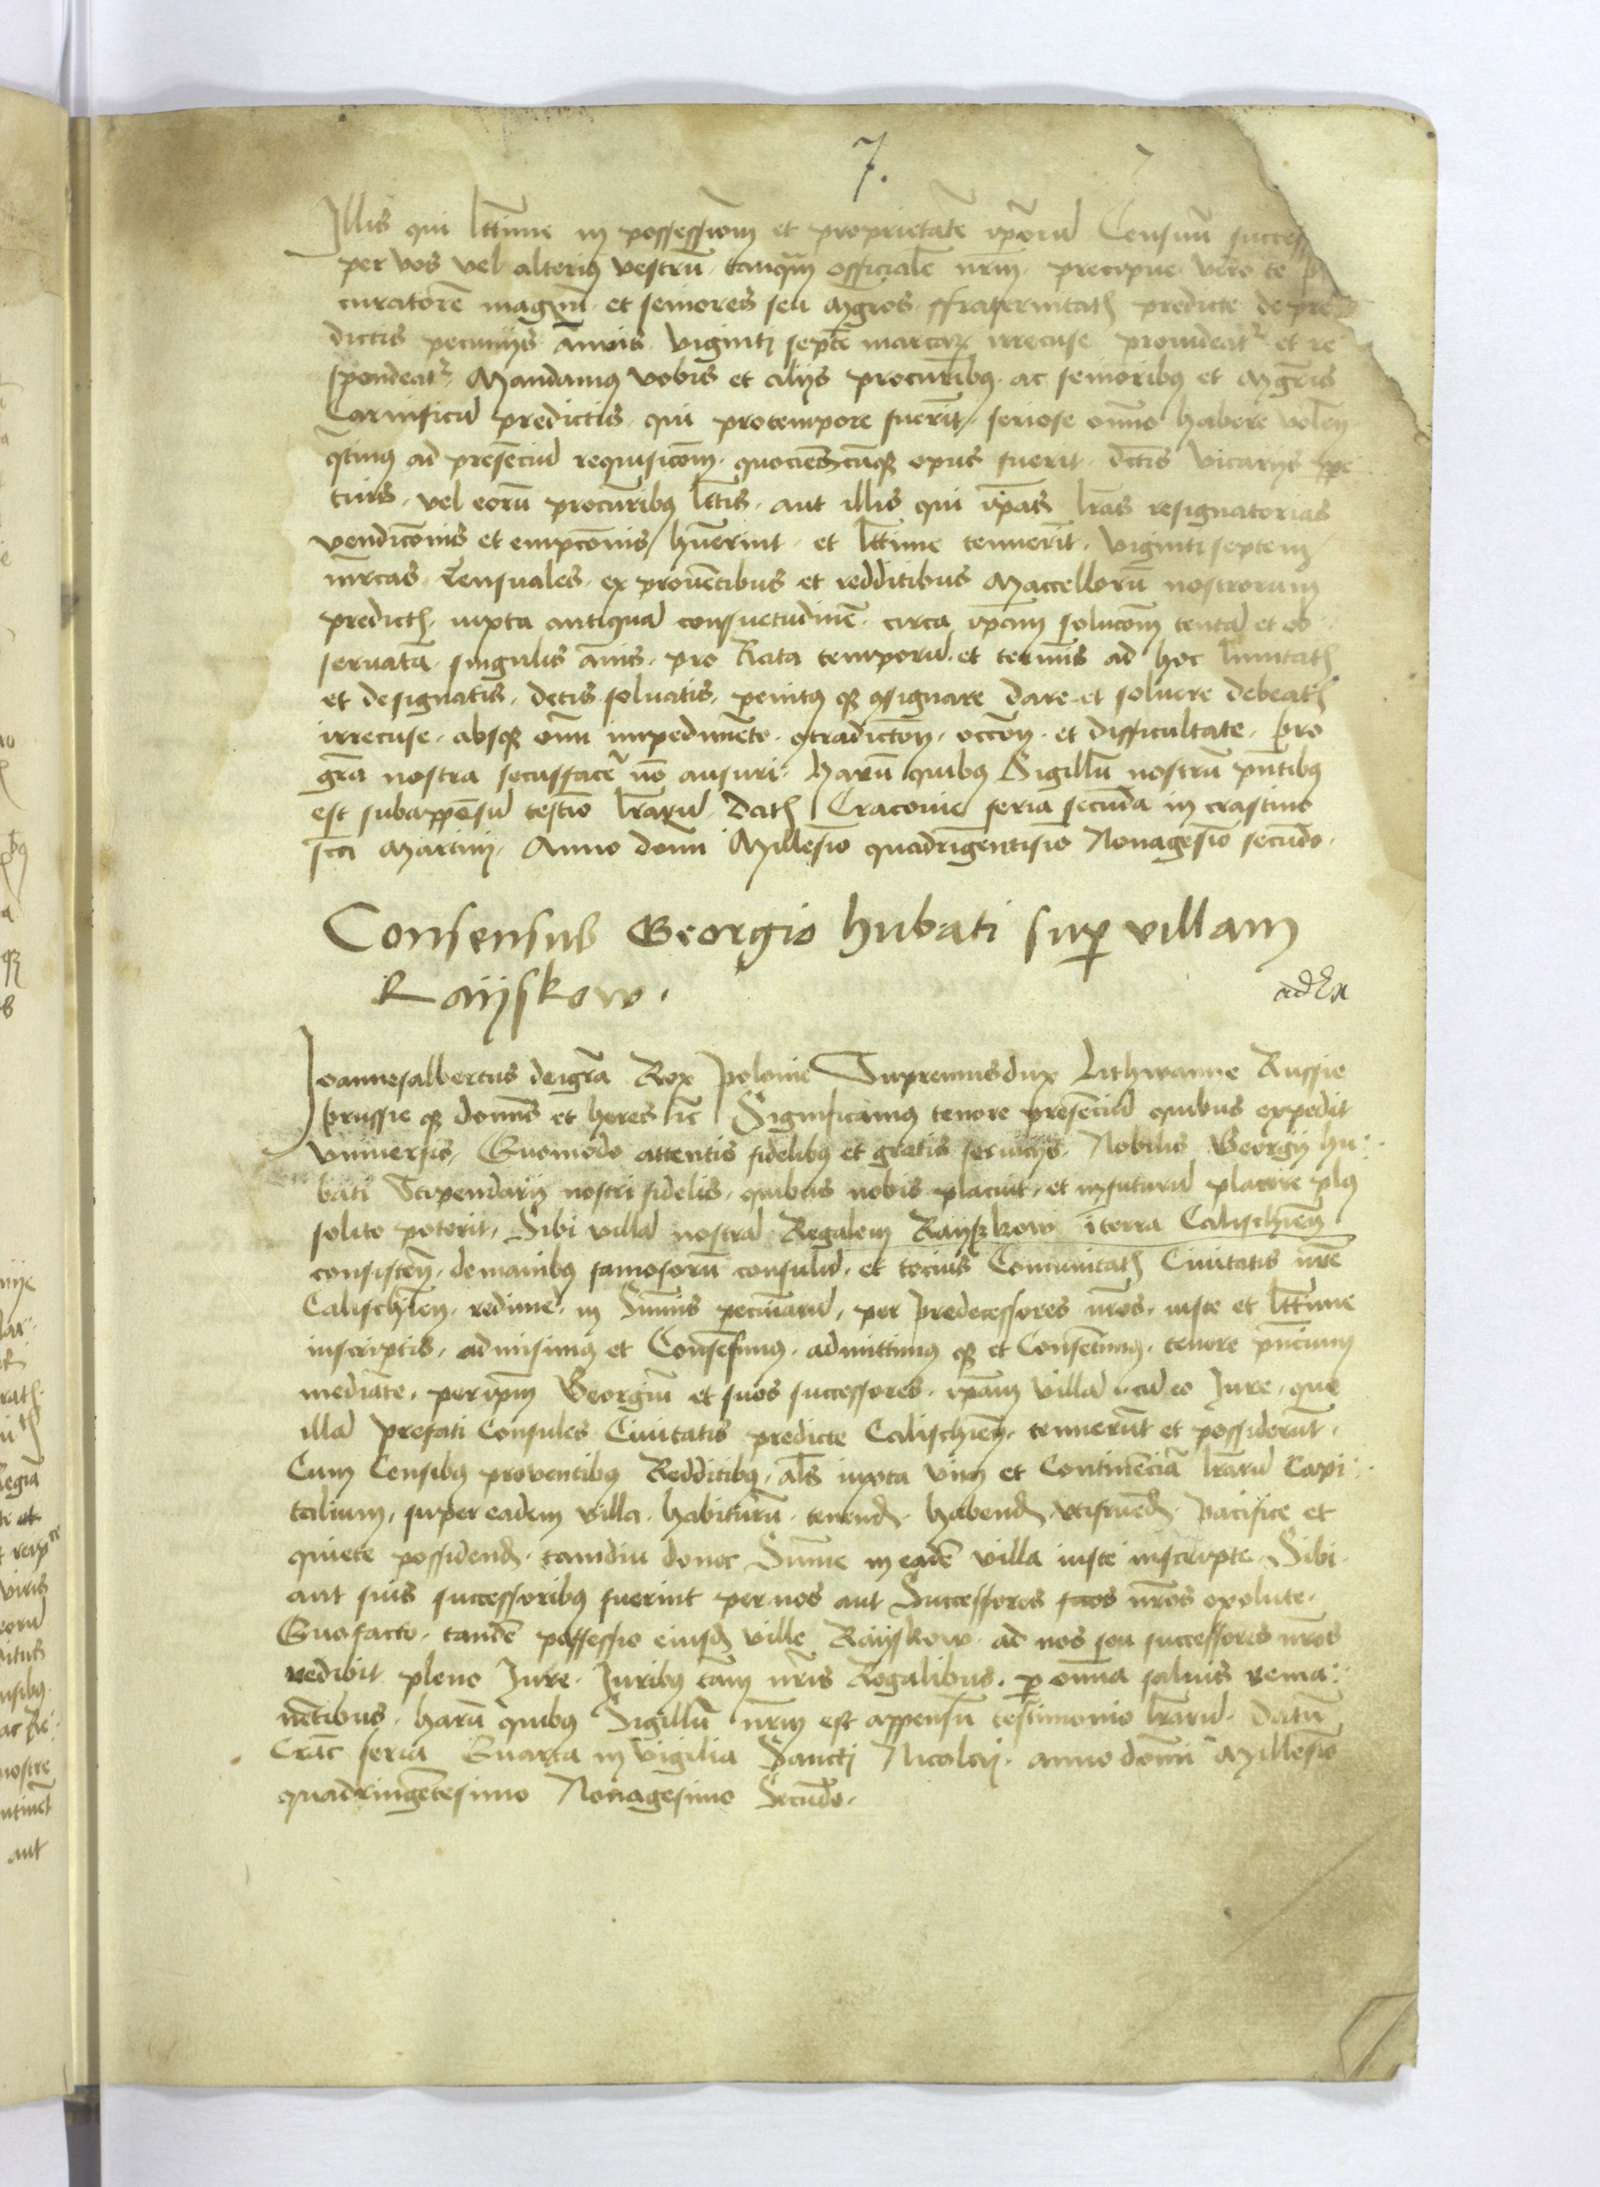 7.
Illis qui lttime in possessiom et proprietate ipõrum Censuũ success
per vos vel alterius vestrũ tanquam officiale nrm precipue vero te p
curatorẽ magnũ et seniores seu mgros ffraternitatis predicte de pre
dictis pecunijs ãnuis viginti septẽ marcarum irrecuse prouideatur et re
spondeatur, Mandamus vobis et alijs procurribus ac senioribus et mgris
Carnificum predictis qui protempore fuerint seriose omnino habere volen
qtinus ad presencium requisicom quocienscunque opus fuerit dctis vicarijs ppe
tuis vel eorũ procurribus lttis aut illis qui ipãs lrãs resignatorias
vendicõnis et empcõnis huerint et lttime tenuerit viginti septem
mrcas Censuales ex prouentibus et redditibus Maccellorũ nostrorum
predictis iuxta antiquam consuetudinẽ circa ipãm solucom tentam et ob
seruatam singulis ãnis pro Rata temporum et terminis ad hoc limitatis
et designatis dctis soluatis penitus que consignare dare et soluere debeatis
irrecuse absque omni impedimẽto contradictõn occõn et difficultate Pro
grã nostra secusfacere nõ ausuri Harũ quibus Sigillũ nostrũ pntibus
est subappensum testimo lrarum Datis Cracouie feria secũda in crastino
scti Martini Anno domi Millesimo quadringentesimo Nonagesimo secũdo
Consensus Georgio hubati super villam
Raijskow.
Joannesalbertus deigrã Rex Polonie Supremusdux Lithwanie Russie
Prussie que domns et heres etc Significamus tenore presencium quibus expedit
vniuersis, Quomodo attentis fidelibus et gratis seruicijs Nobilis Georgij hu
bati Stipendarij nostri fidelis quibus nobis placuit et infuturum placere plus
solito poterit, Sibi villam nostram Regalem Raijskow iterra Calischiens
consisten demanibus famosorũ consulum et tocius Comunitatis Ciuitatis nrẽ
Calischien redimẽ in Sũmis pecuniarum per predecessores nrõs iuste et lttime
inscriptis admisimus et Consẽsimus admittimus que et Consẽtimus tenore pncium
mediãte per ipm Georgiũ et suos successores ipãm villam cum eo Jure quo
illam prefati Consules Ciuitatis predicte Calischien tenuerũt et possiderũt
Cum Censibus prouentibus Redditibus als iuxta vim et Continẽciã lrarum Capi
talium super eadem villa habiturũ tenend habend vtifruend Pacifice et
quiete possidend tamdiu donec Sũme in eadẽ villa iuste inscripte Sibi
aut suis successoribus fuerint per nos aut Successores nrõs exolute
Quofacto tandẽ possessio eiusdem ville Raijskow ad nos seu successores nrõs
redibit pleno Jure Juribus tam nrĩs Regalibus per omnia saluis rema
nẽtibus Harũ quibus Sigillũ nrm est appensũ testimonio lrarum Datũ
Crac feria Quarta in vigilia Sancti Nicolai anno domi Millesimo
quadringẽtesimo Nonagesimo Secũdo